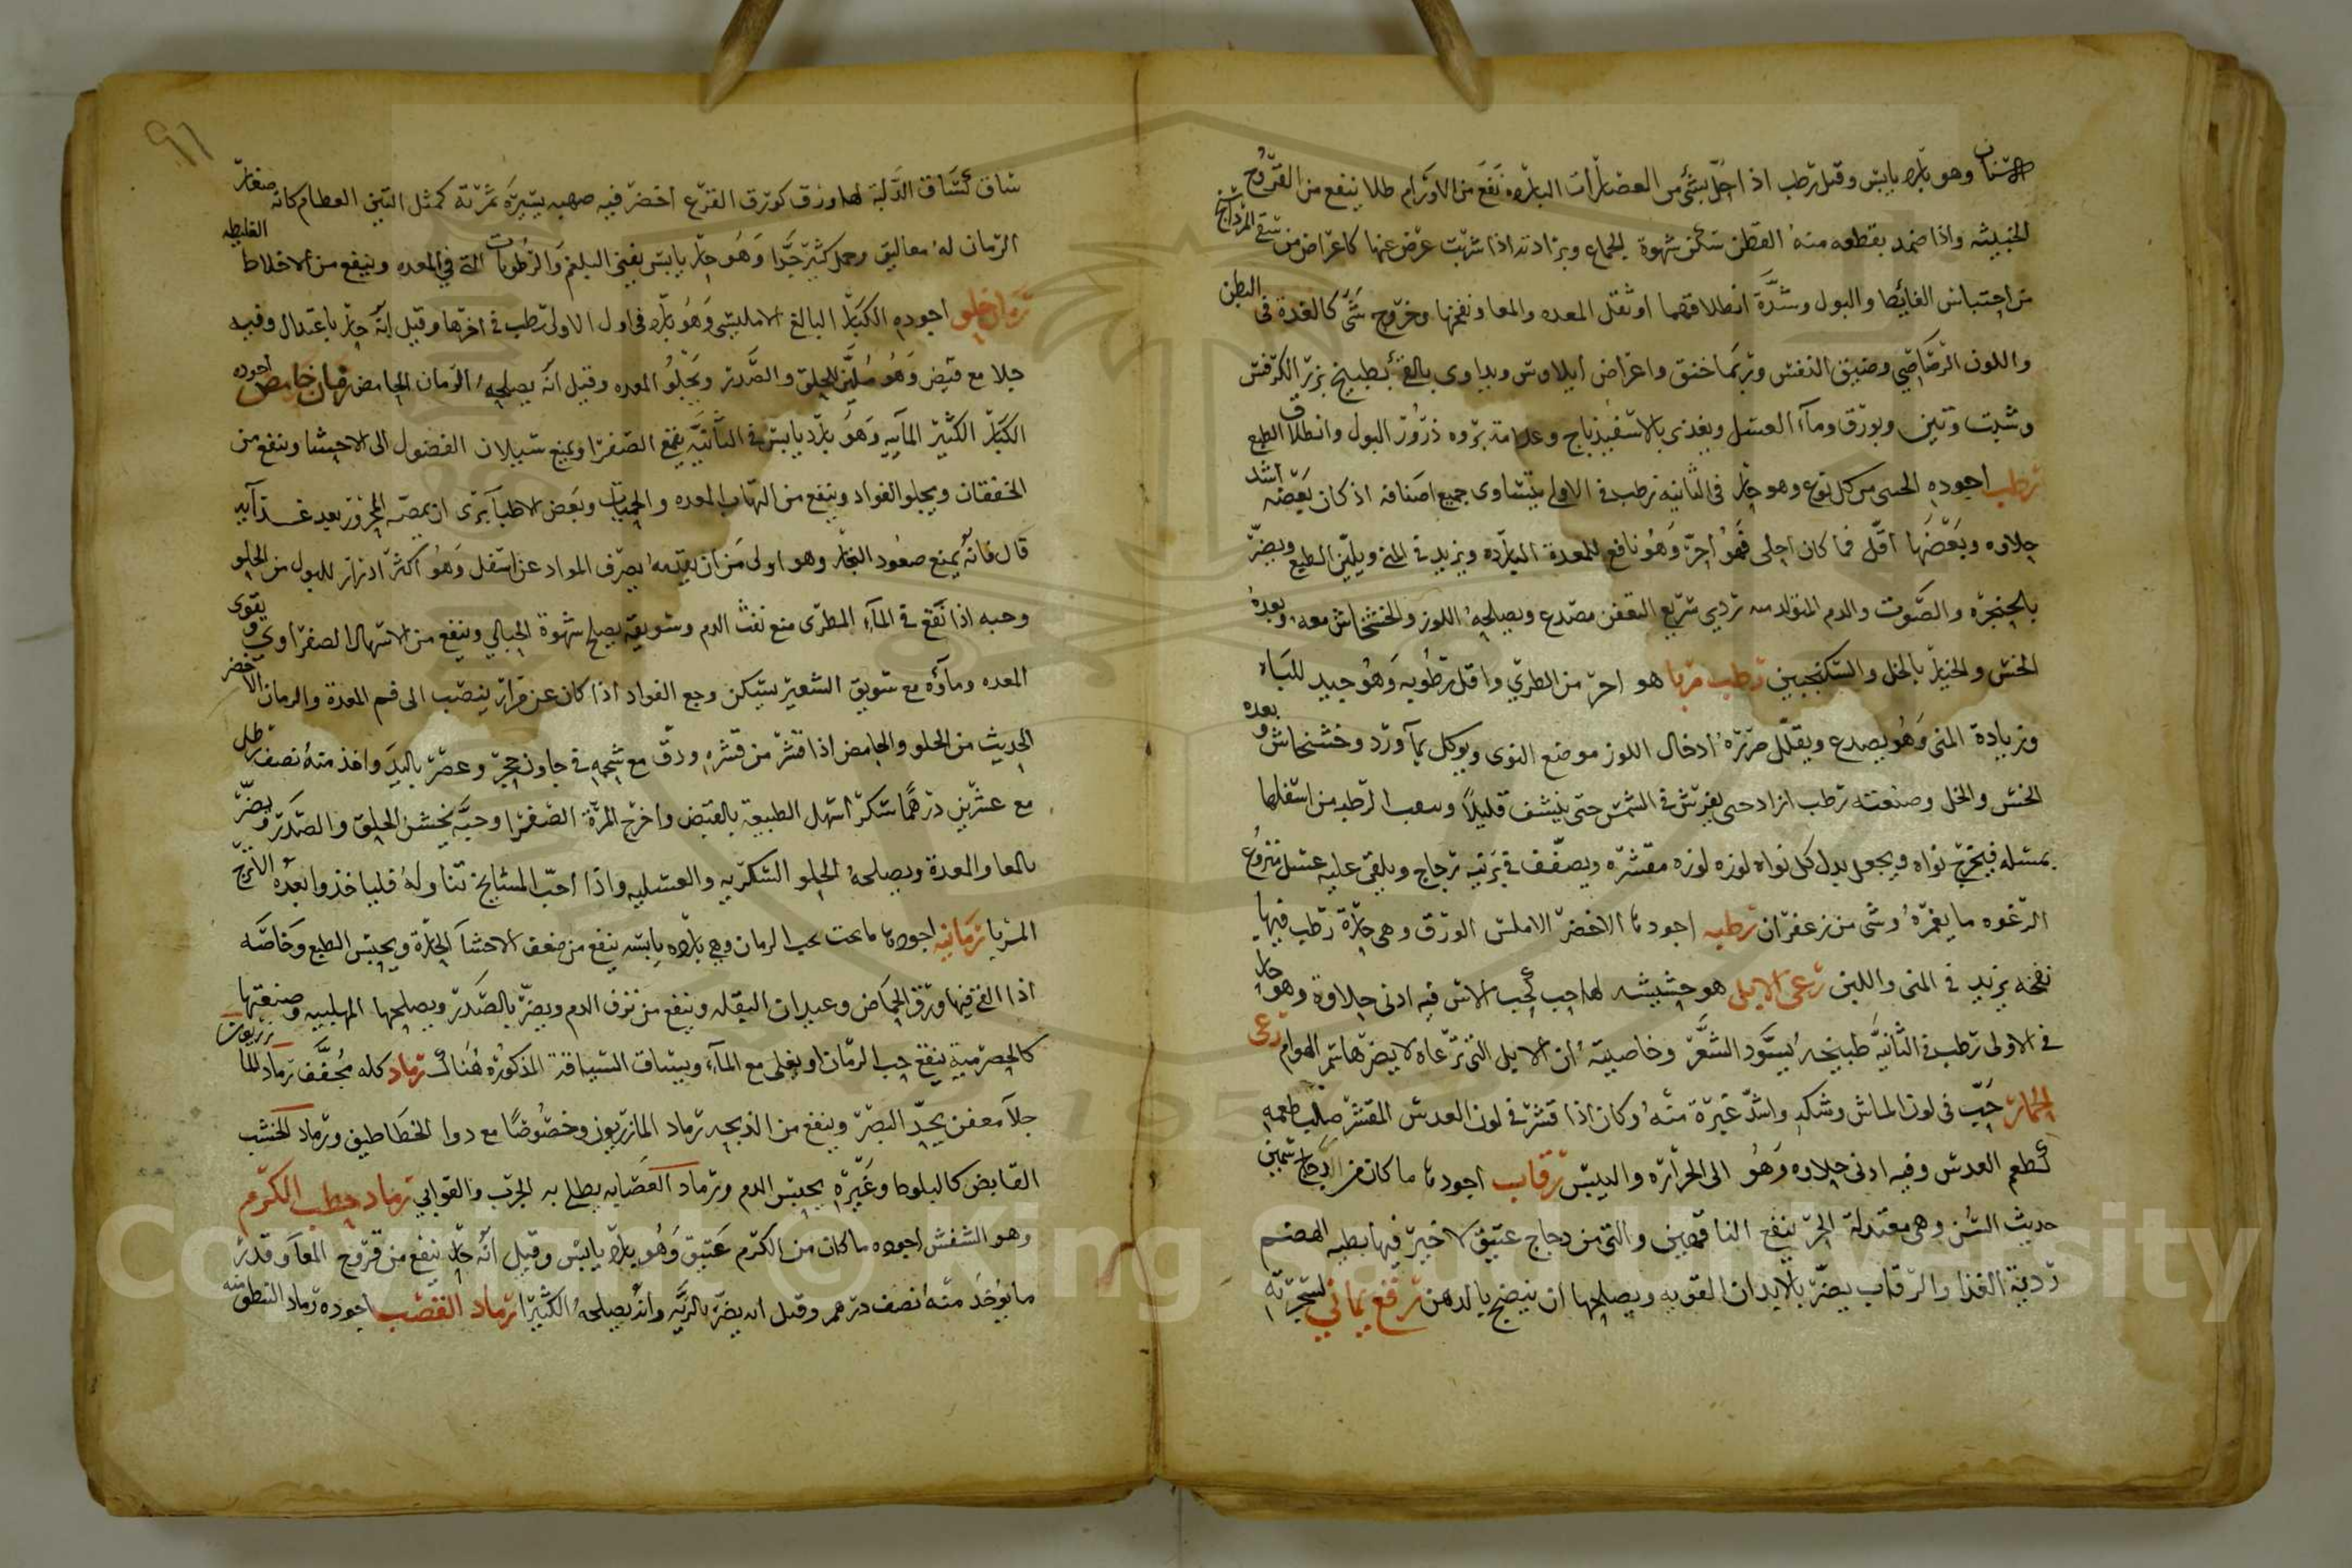 وهو بارد يابس وقيل رطب اذا حل بشئ من العصارات الباردة نفع من الاورام طلا ينفع من القروح
الخبيثه واذا ضمد بقطعه منه القطن سكن شهوة الجماع وبرادته اذا شربت عرض عنها كاعراض من سقي المرداسنج
من احتباس الغائط والبول وشدة انطلاقهما او ثقل المعده والمعا ونفخها وخروج شئ كالغدة في البطن
واللون الرصاصي وضيق النفس وربما خنق واعراض ايلاوس ويداوى بالقئ بطبيخ بزر الكرفس
وشبت وتين وبورق ومآء العسل ويغذى بالاسفيذباج وعلامة بروه ذرور البول وانطلاق الطبع
رطب اجوده الجنى من كل نوع وهو حار في الثانيه رطب في الاولى يتساوى جميع اصنافه اذ كان بعضه اشد
حلاوه وبعضها اقل فما كان احلى فهو احر وهو نافع للمعدة البارده ويزيد في المنى ويلين الطبع ويضر
بالحنجره والصوت والدم المتولد منه ردي سريع التعفن مصدع ويصلحه اللوز والخشخاش معه وبعده
الخس والخيار بالخل والسكنجبين رطب مربا هو احر من الطري واقل رطوبه وهو جيد للباه
وزيادة المنى وهو يصدع ويقلل ضرره ادخال اللوز موضع النوى ويوكل بمآ ورد وخشخاش وبعده
الخس والخل وصنعته رطب ازاد جنى يفرش في الشمس حتى ينشف قليلا ويثقب الرطبه من اسفلها
بمسله فيخرج نواه ويجعل بدل كل نواه لوزه لوزه مقشره ويصفف في برنية زجاج ويلقى عليه عسل منزوع
الرغوه ما يغمره وشئ من زعفران رطبه اجودها الاخضر الاملس الورق وهي حارة رطب فيها
نفخه يزيد في المنى واللبن رعى الابل هو حشيشه لها حب كحب الاس فيه ادنى حلاوة وهو حار
في الاولى رطب في الثانية طبيخه يسود الشعر وخاصيته ان الابل التي ترعاه لا يضرها سم الهوام رعى
الحمار حب في لون الماش وشكله واشد غبرة منه وكان اذا قشر في لون العدس المقشر صلب طعمه
كطعم العدس وفيه ادنى حلاوه وهو الى الحرارة واليبس رقاب اجودها ما كان من الدجاج سمين
حديث السن وهي معتدلة الحر ينفع الناقهين والتي من دجاج عتيق لا خير فيها بطيه الهضم
ردية الغذا والرقاب يضر بالابدان القويه ويصلحها ان ينضج بالدهن رقع يماني لشجرته
٩١
ساق كساق الدلبة لها ورق كورق القرع اخضر فيه صهبه يسيره ثمرته كمثل التين العظام كانه صغار
الرمان له معاليق وحمل كثير جدا وهو حار يابس يفنى البلغم والرطوبات التي في المعده وينفع من الاخلاط الغليظه
رمان حلو اجوده الكبار البالغ الامليسى وهو بارد في اول الاولى رطب في اخرها وقيل انه حار باعتدال وفيه
جلا مع قبض وهو ملين للحلق والصدر ويجلو المعده وقيل انه يصلحه الرمان الحامض رمان حامض اجوده
الكبار الكثير المآييه وهو بارد يابس في الثانيه يقمع الصفرا ويمنع سيلان الفضول الى الاحشا وينفع من
الخفقان ويجلو الفواد وينفع من التهاب المعده والحميات وبعض الاطبآ يرى ان يمصه المحرور بعد غذآيه
قال فانه يمنع صعود البخار وهو اولى من ان يقدمه يصرف المواد عن اسفل وهو اكثر ادرارا للبول من الحلو
وحبه اذا نقع في المآء المطرى منع نفث الدم وسويقه يصلح شهوة الحبالى وينفع من الاسهال الصفراوي ويقوى
المعده ومآؤه مع سويق الشعير يسكن وجع الفواد اذا كان عن مرار ينصب الى فم المعدة والرمان الاخضر
الحديث من الحلو والحامض اذا قشر من قشره ودق مع شحمه في جاون حجر وعصر باليد واخذ منه نصف رطل
مع عشرين درهما سكر اسهل الطبيعة بالقبض واخرج المرة الصفرا وحبه يخشن الحلق والصدر ويضر
بالمعا والمعدة ويصلحه الحلو السكريه والعسليه واذا احب المشايخ تناوله فلياخذوا بعده الاترج
المربا رمانيه اجودها ما تحت بحب الرمان وهي بارده يابسه ينفع من ضعف الاحشآ الحارة ويحبس الطبع وخاصه
اذا القي فيها ورق الحماض وعيدان البقله وينفع من نزف الدم ويضر بالصدر ويصلحها الهليبيه وصنعتها
كالحصرمية ينقع حب الرمان او يغلى مع المآء ويساق السياقة المذكوره هناك رماد كله مجفف رماد
جلآ معفن يحد البصر وينفع من الذبحه رماد المازريون وخصوصا مع دوا الخطاطيف ورماد الخشب
القابض كالبلوط وغيره يحبس الدم ورماد العضايه يطلى به الجرب والقوابي رماد حطب الكرم
وهو الشفش اجوده ما كان من الكرم عتيق وهو بارد يابس وقيل انه حار ينفع من قروح المعآ وقدر
ما يوخذ منه نصف درهم وقيل انه يضر بالريه وانه يصلحه الكثيرا رماد القصب اجوده رماد النبطي منه